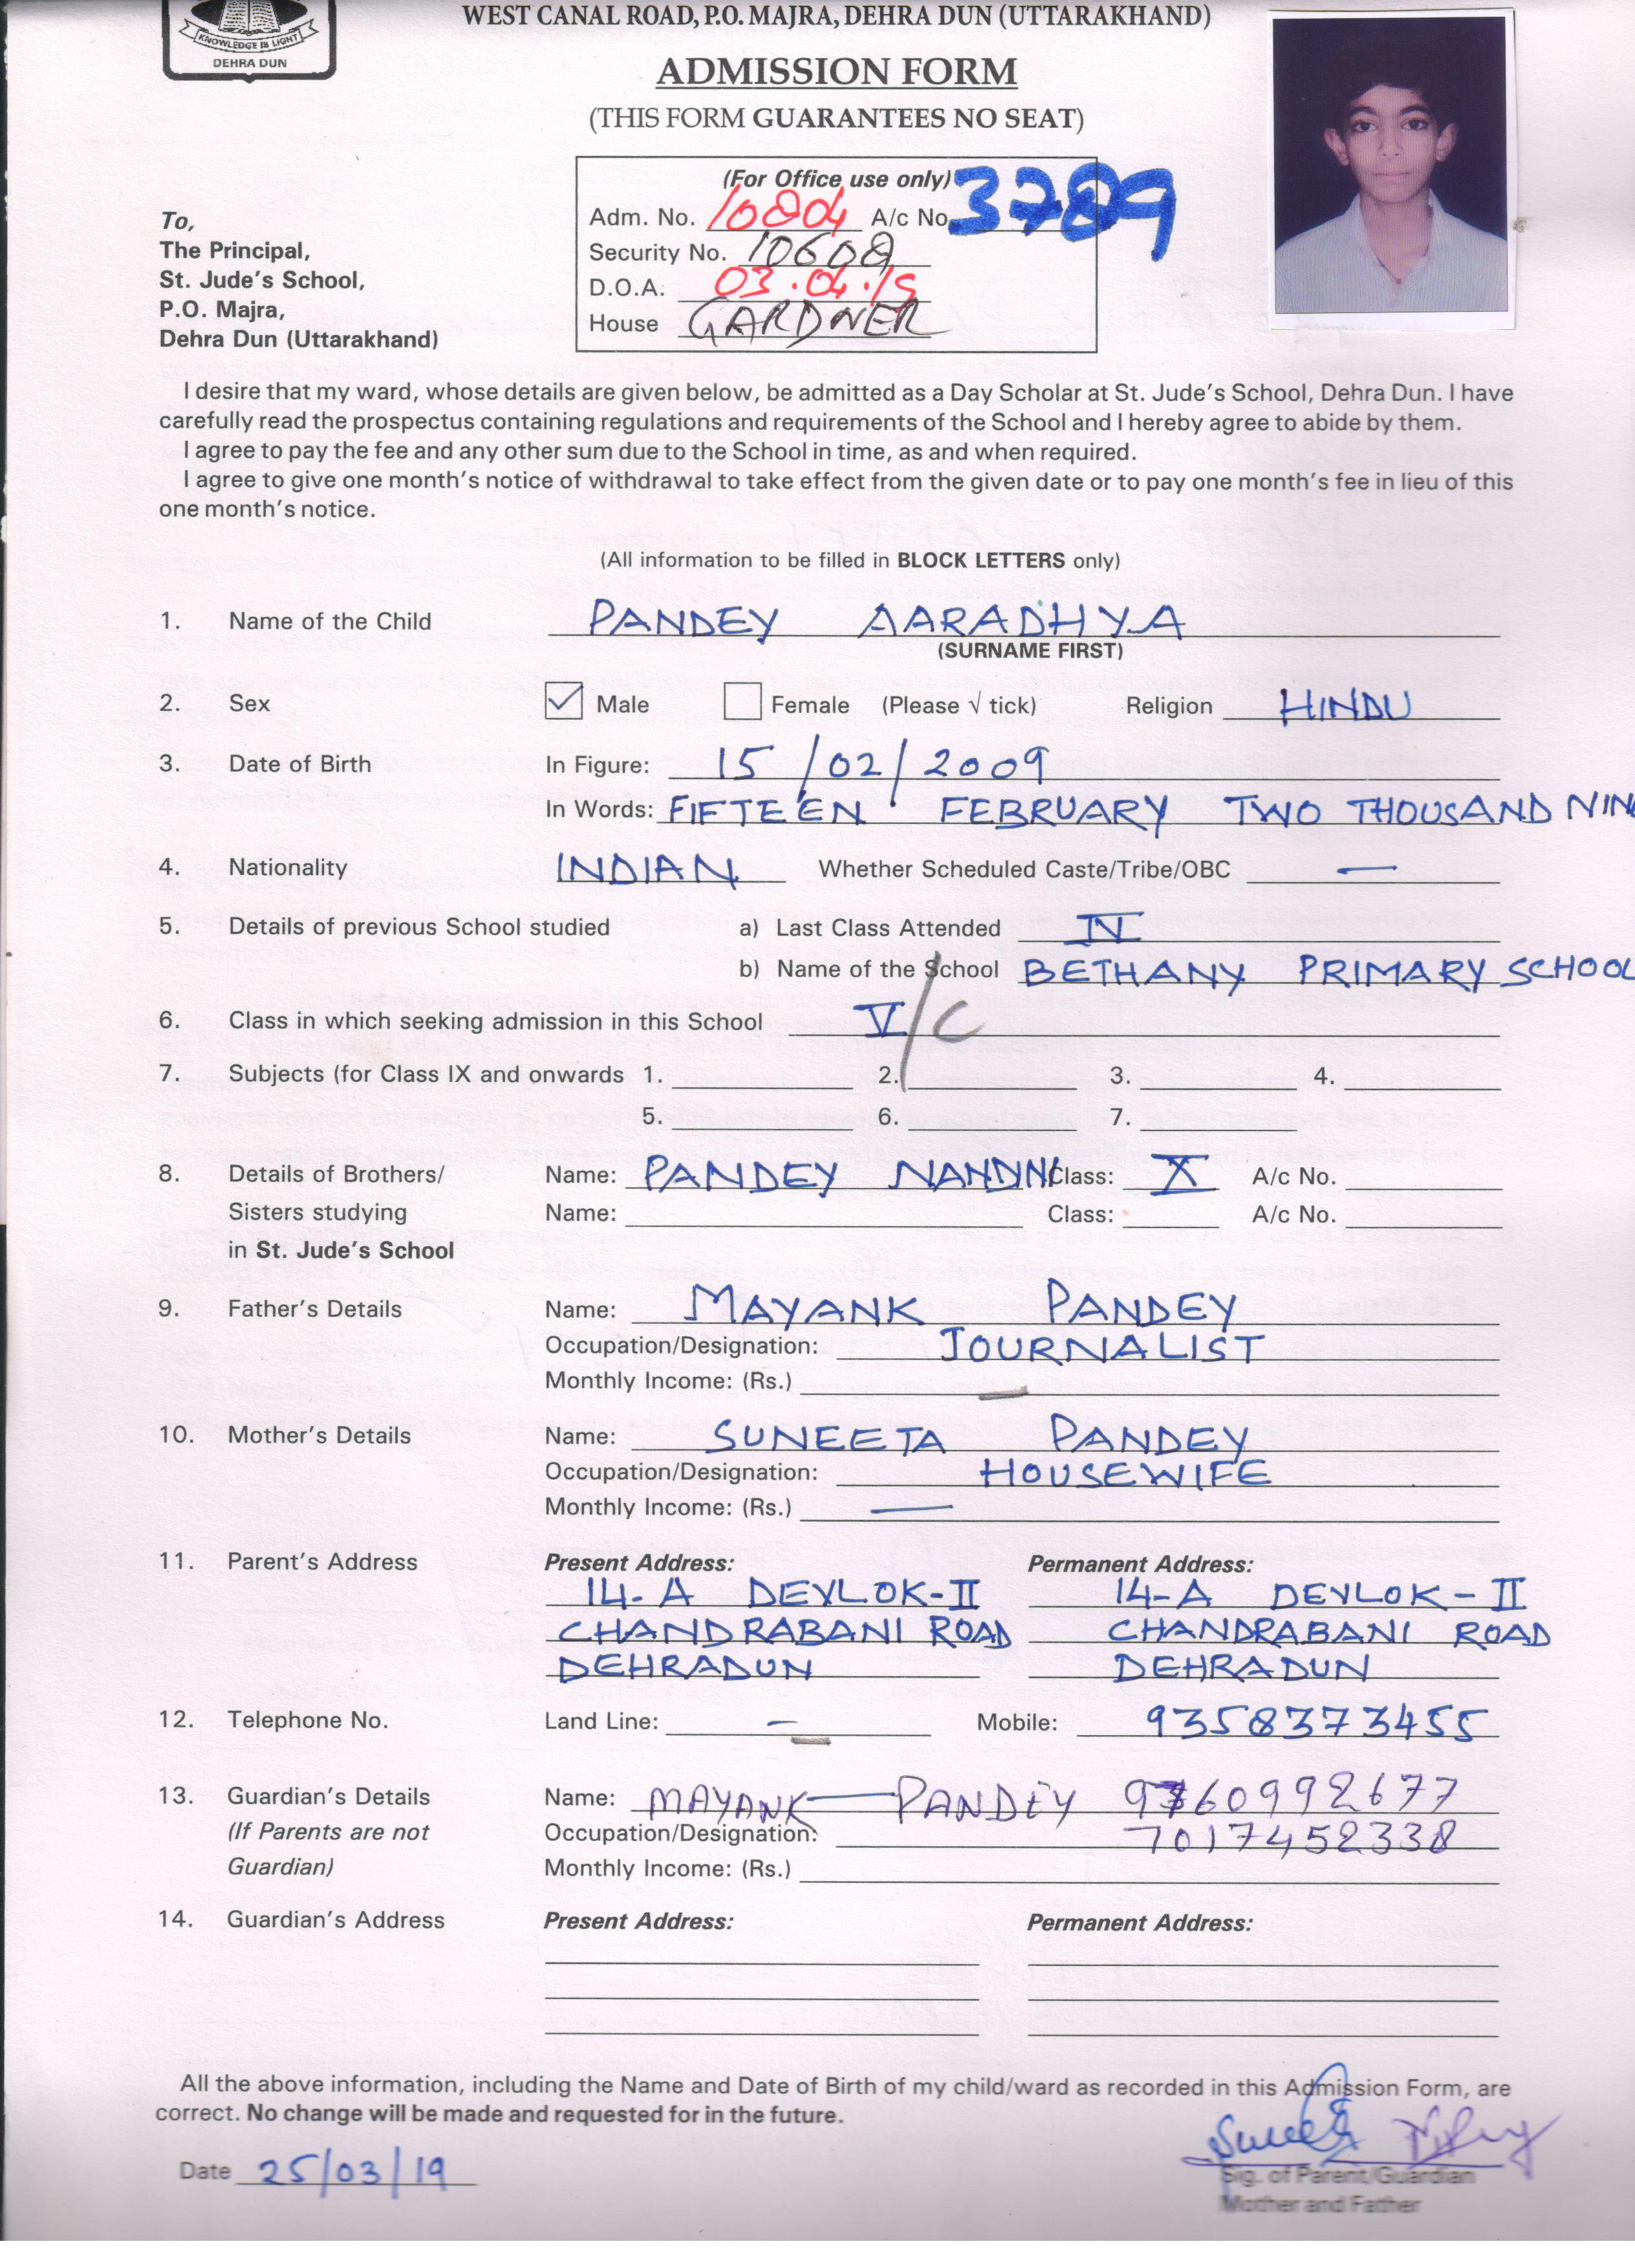 KNOWLEDGE IS LIGHT
DEHRA DUN
WEST CANAL ROAD, P.O. MAJRA, DEHRA DUN (UTTARAKHAND)
ADMISSION FORM
(THIS FORM GUARANTEES NO SEAT)
(For Office use only)
Adm. No. 10804 A/c No. 3789
Security No. 10608
D.O.A. 03.04.19
House GARDNER
To,
The Principal,
St. Jude's School,
P.O. Majra,
Dehra Dun (Uttarakhand)
I desire that my ward, whose details are given below, be admitted as a Day Scholar at St. Jude's School, Dehra Dun. I have
carefully read the prospectus containing regulations and requirements of the School and I hereby agree to abide by them.
I agree to pay the fee and any other sum due to the School in time, as and when required.
I agree to give one month's notice of withdrawal to take effect from the given date or to pay one month's fee in lieu of this
one month's notice.
(All information to be filled in BLOCK LETTERS only)
1. Name of the Child PANDEY AARADHYA
(SURNAME FIRST)
2. Sex ✓ Male Female (Please √ tick) Religion HINDU
3. Date of Birth In Figure: 15/02/2009
In Words: FIFTEEN FEBRUARY TWO THOUSAND NIN
4. Nationality INDIAN Whether Scheduled Caste/Tribe/OBC —
5. Details of previous School studied a) Last Class Attended IV
b) Name of the School BETHANY PRIMARY SCHOOL
6. Class in which seeking admission in this School V/C
7. Subjects (for Class IX and onwards 1. 2. 3. 4.
5. 6. 7.
8. Details of Brothers/ Name: PANDEY NANDINI Class: X A/c No.
Sisters studying Name: Class: A/c No.
in St. Jude's School
9. Father's Details Name: MAYANK PANDEY
Occupation/Designation: JOURNALIST
Monthly Income: (Rs.) —
10. Mother's Details Name: SUNEETA PANDEY
Occupation/Designation: HOUSEWIFE
Monthly Income: (Rs.) —
11. Parent's Address Present Address: Permanent Address:
14-A DEVLOK-II 14-A DEVLOK-II
CHANDRABANI ROAD CHANDRABANI ROAD
DEHRADUN DEHRADUN
12. Telephone No. Land Line: — Mobile: 9358373455
13. Guardian's Details Name: MAYANK PANDEY 9760992677
(If Parents are not Occupation/Designation: 7017452338
Guardian) Monthly Income: (Rs.)
14. Guardian's Address Present Address: Permanent Address:
All the above information, including the Name and Date of Birth of my child/ward as recorded in this Admission Form, are
correct. No change will be made and requested for in the future.
Date 25/03/19
Sig. of Parent/Guardian
Mother and Father